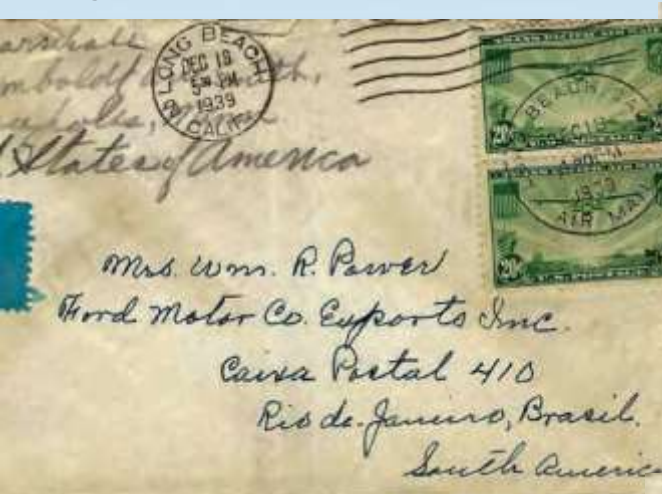 LONG BEACH
DEC 18
5 PM
1939
CALIF.
States of America
20¢
AIR MAIL
1939
20¢
Mrs. Wm. R. Power
Ford Motor Co. Exports Inc.
Caixa Postal 410
Rio de. Janeiro, Brasil.
South America